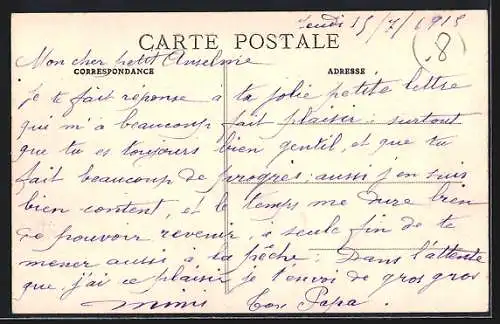 Jeudi 15/7/1915
CARTE POSTALE
8
Mon cher petit Anselme
CORRESPONDANCE
ADRESSE
Je te fait réponse a ta jolie petite lettre
qui m'a beaucoup fait plaisir : surtout
que tu es toujours bien gentil, et que tu
fait beaucoup de progrès ; aussi j'en suis
bien content, et le temps me dure bien
de pouvoir revenir, a seule fin de te
mener aussi à la pêche. Dans l'attente
que j'ai ce plaisir je t'envoi de gros gros
mimi Ton Papa.